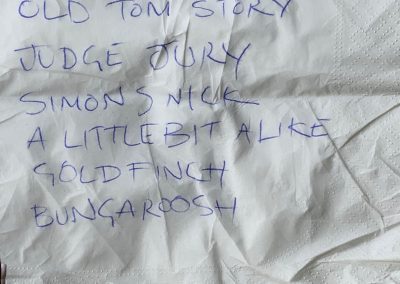 OLD TOM STORY
JUDGE JURY
SIMON S NICK
A LITTLE BIT ALIKE
GOLDFINCH
BUNGAROOSH